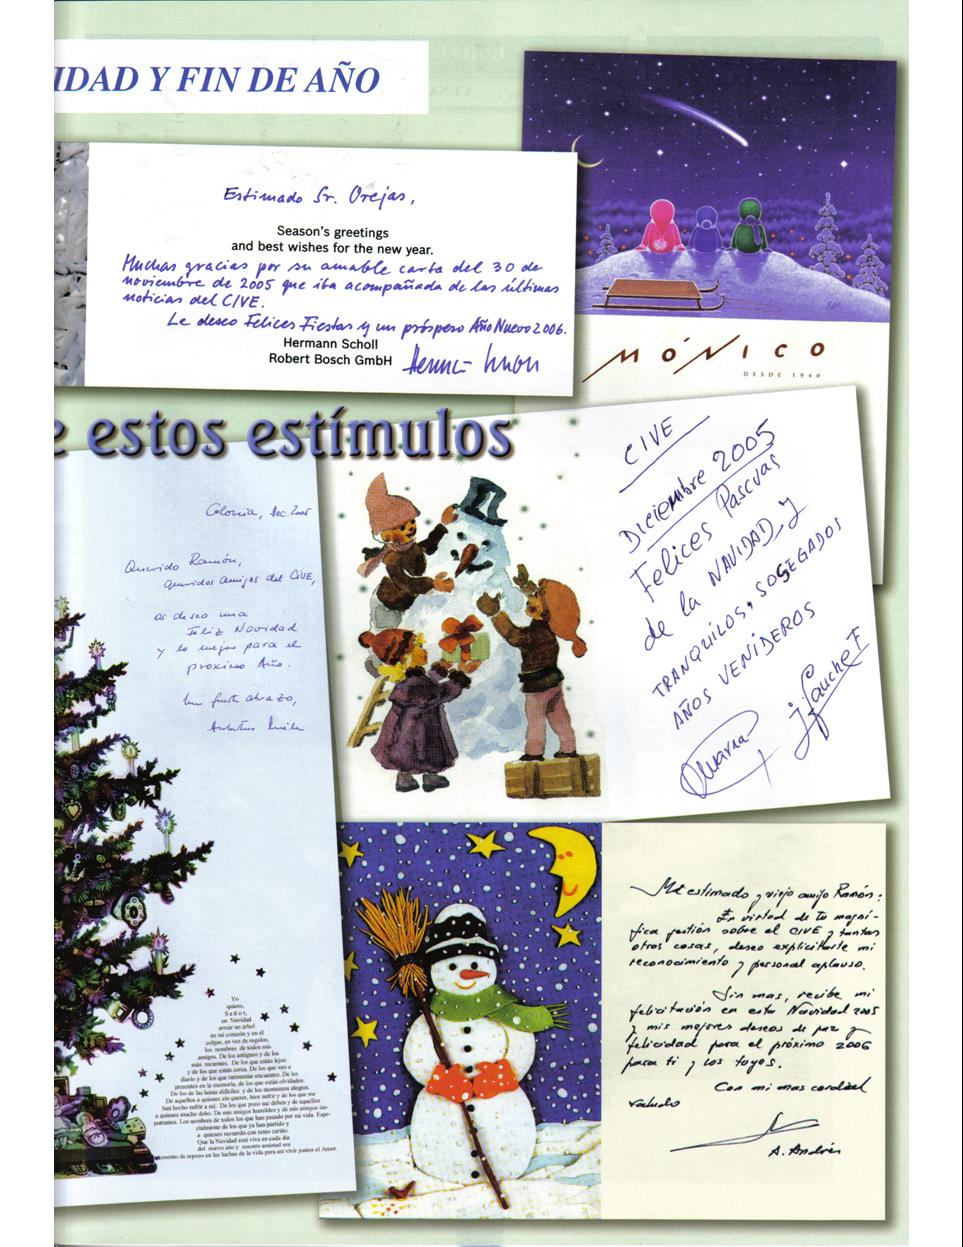 IDAD Y FIN DE AÑO
Estimado Sr. Orejas,
Season's greetings
and best wishes for the new year.
Muchas gracias por su amable carta del 30 de
noviembre de 2005 que iba acompañada de las últimas
noticias del CIVE.
Le deseo Felices Fiestas y un próspero Año Nuevo 2006.
Hermann Scholl
Robert Bosch GmbH
MÓNICO
DESDE 1940
e estos estímulos
Colonia, Dec. 2005
Querido Ramón,
queridos amigos del CIVE,
os deseo una
Feliz Navidad
y lo mejor para el
próximo Año.
Un fuerte abrazo,
Yo
quiero,
Señor,
en Navidad
armar un árbol
en mi corazón y en él
colgar, en vez de regalos,
los nombres de todos mis
amigos. De los antiguos y de los
más recientes. De los que están lejos
y de los que están cerca. De los que veo a
diario y de los que raramente encuentro. De los
presentes en la memoria, de los que están olvidados.
De los de las horas difíciles y de los momentos alegres.
De aquellos a quienes sin querer, hice sufrir y de los que me
han hecho sufrir a mí. De los que poco me deben y de aquellos
a quienes mucho debo. De mis amigos humildes y de mis amigos im-
portantes. Los nombres de todos los que han pasado por mi vida. Espe-
cialmente de los que ya han partido y
a quienes recuerdo con tanto cariño.
Que la Navidad esté viva en cada día
del nuevo año y nuestra amistad sea
omento de reposo en las luchas de la vida para así vivir juntos el Amor.
CIVE
Diciembre 2005
Felices Pascuas
de la NAVIDAD, y
TRANQUILOS, SOSEGADOS
AÑOS VENIDEROS
Mi estimado y viejo amigo Ramón:
En virtud de tu magní-
fica gestión sobre el CIVE y tantas
otras cosas, deseo explicitarte mi
reconocimiento y personal aplauso.
Sin mas, recibe mi
felicitación en esta Navidad 2005
y mis mejores deseos de paz y
felicidad para el próximo 2006
para ti y los tuyos.
Con mi mas cordial
saludo
A. Andrés